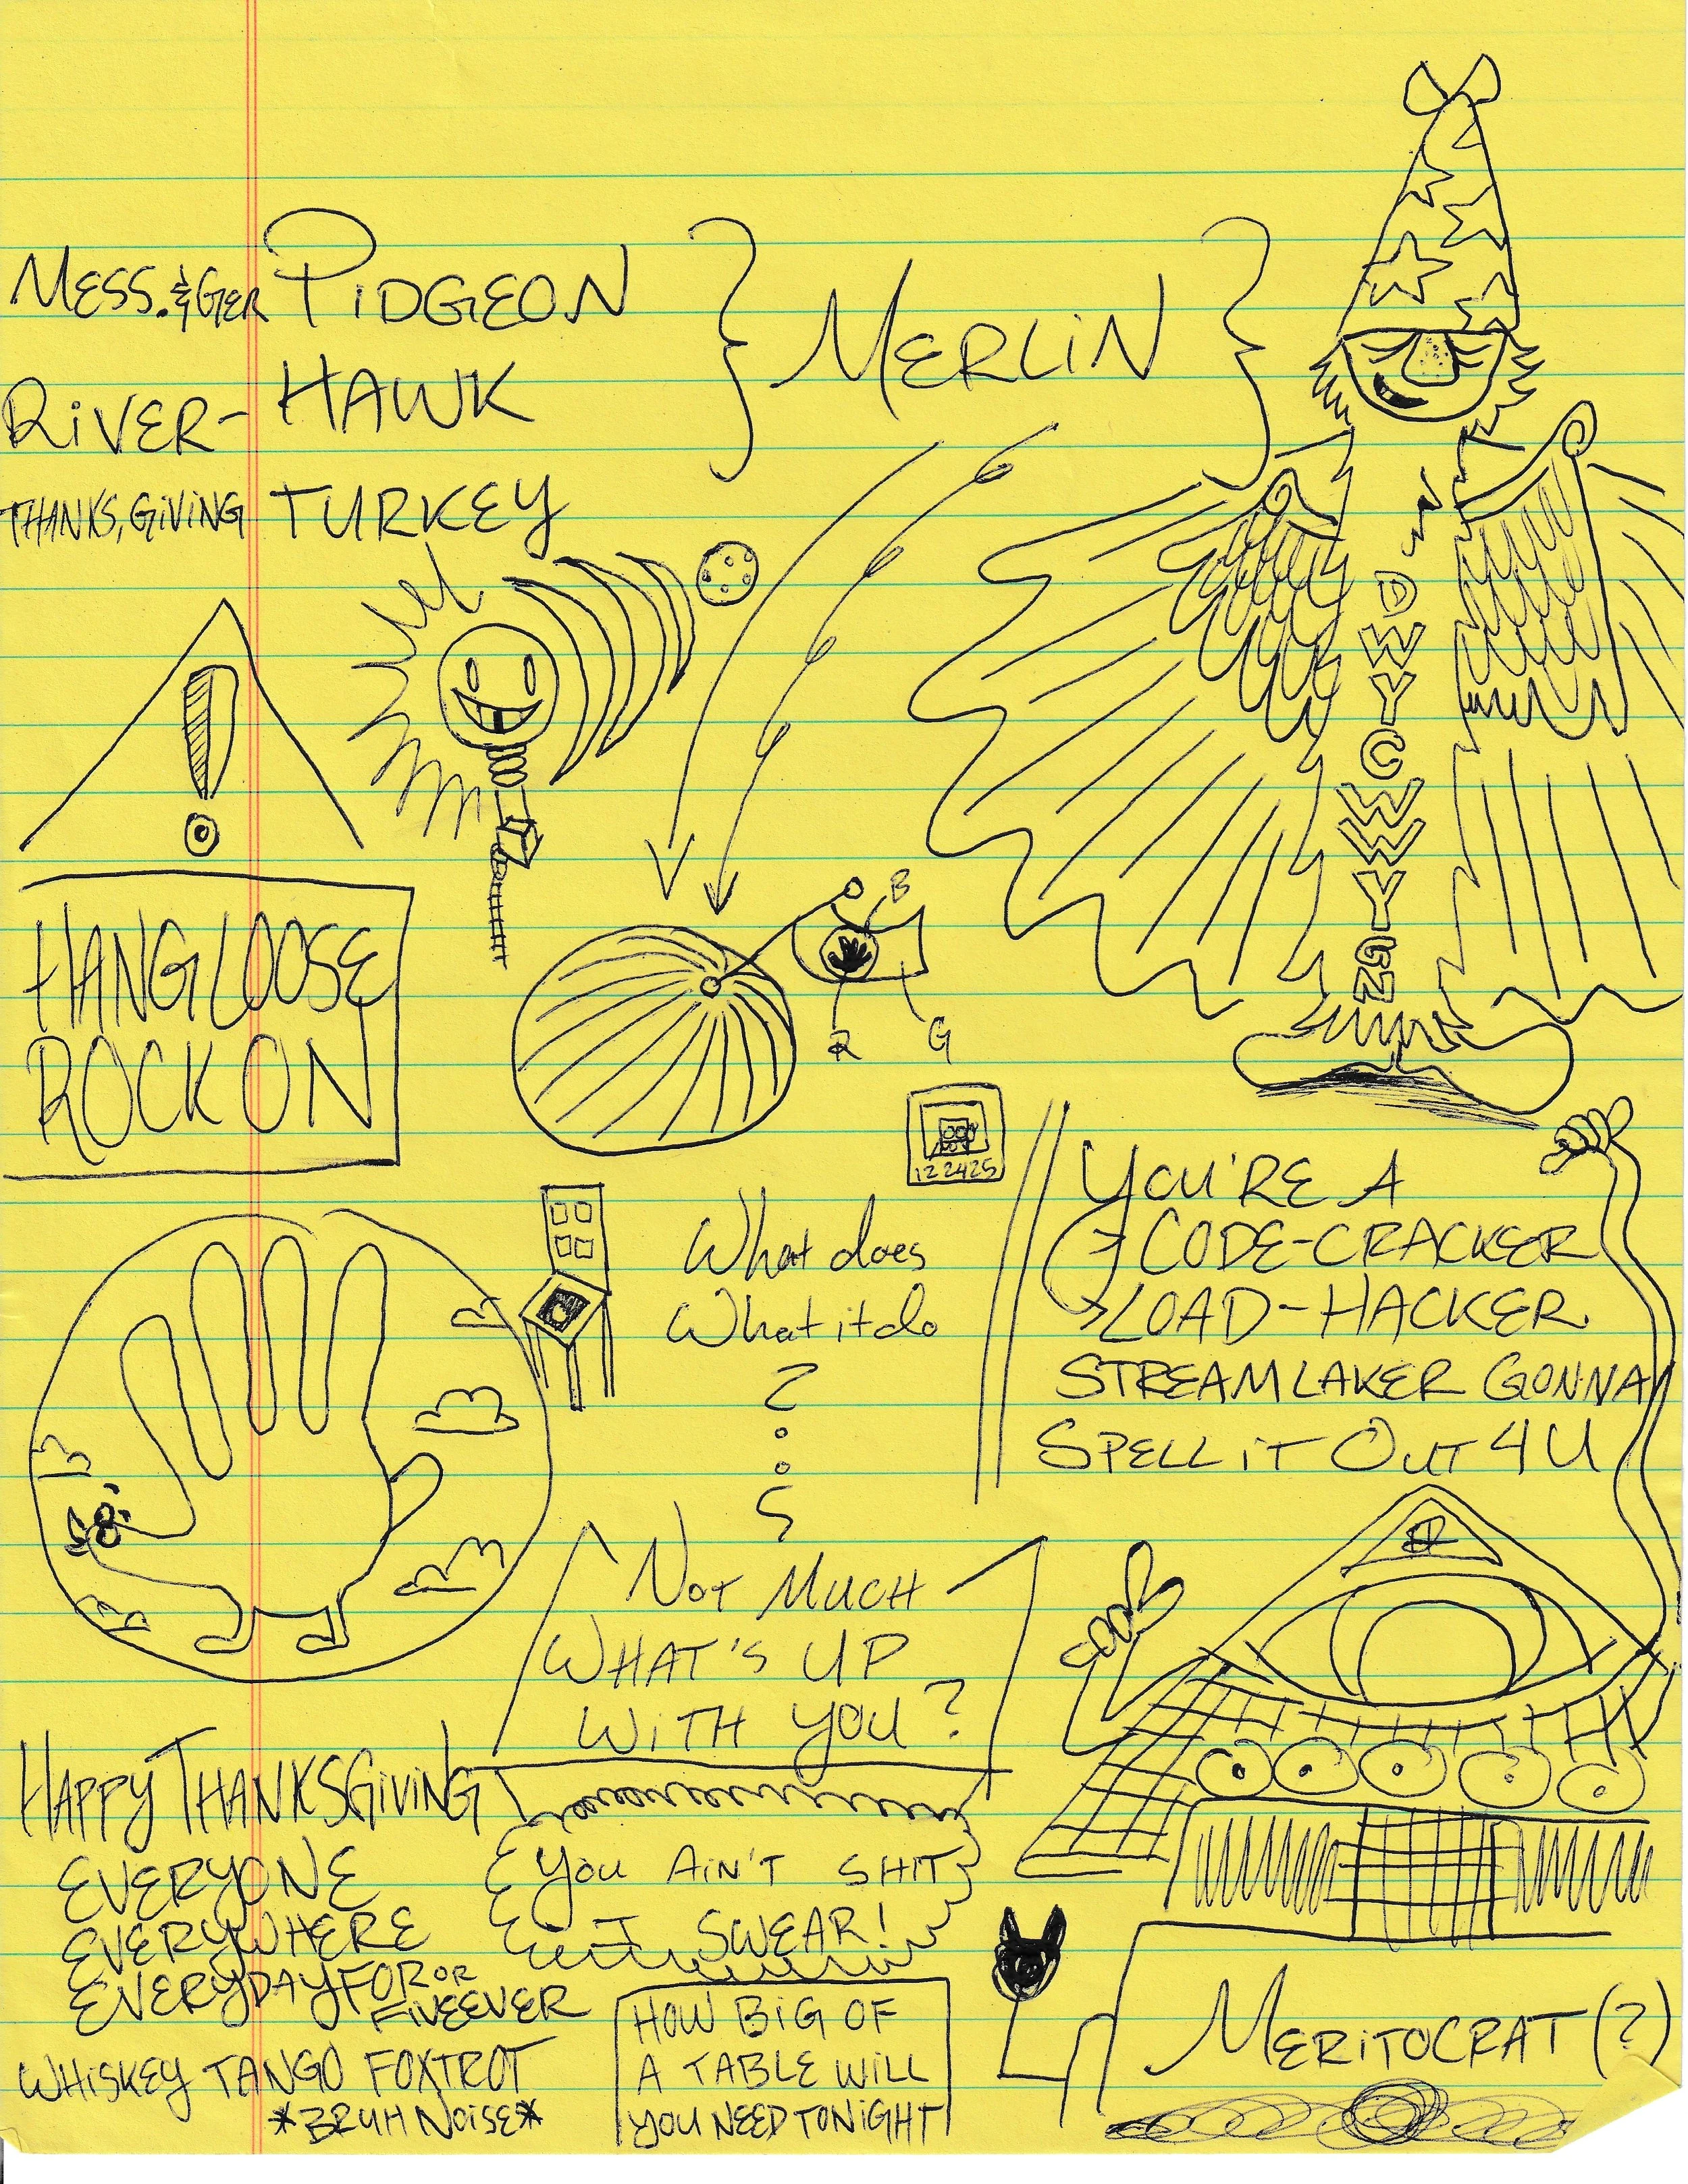 MESS.&GER PIDGEON
RIVER- HAWK
THANKS,GIVING TURKEY
MERLIN
D
W
Y
C
W
W
Y
G
N
HANG LOOSE
ROCK ON
B
R
G
122425
What does
What it do
?
YOU'RE A
CODE-CRACKER
LOAD-HACKER
STREAMLAKER GONNA
SPELL iT OUT 4 U
NOT MUCH
WHAT'S UP
WiTH YOU?
HAPPY THANKSGiViNG
EVERYONE
EVERYWHERE
EVERYDAY FOR OR
FiVEEVER
WHiSKEY TANGO FOXTROT
*BRUH NOiSE*
YOU AiN'T SHIT
I SWEAR!
HOW BiG OF
A TABLE WiLL
YOU NEED TONiGHT
MERiTOCRAT (?)